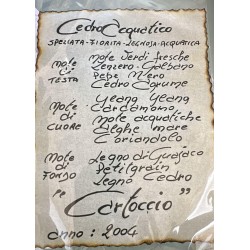 Cedro Acquatico
SPEZIATA - FIORITA - LEGNOSA - ACQUATICA
Note di TESTA
Note Verdi fresche
Zenzero - Galbano
Pepe Nero
Cedro Agrume
Note di CUORE
Ylang Ylang
Cardamomo
Note acquatiche
Alghe mare
Coriandolo
Note di FONDO
Legno di Guajaco
Petitgrain
Legno Cedro
"Cartoccio"
Anno : 2004